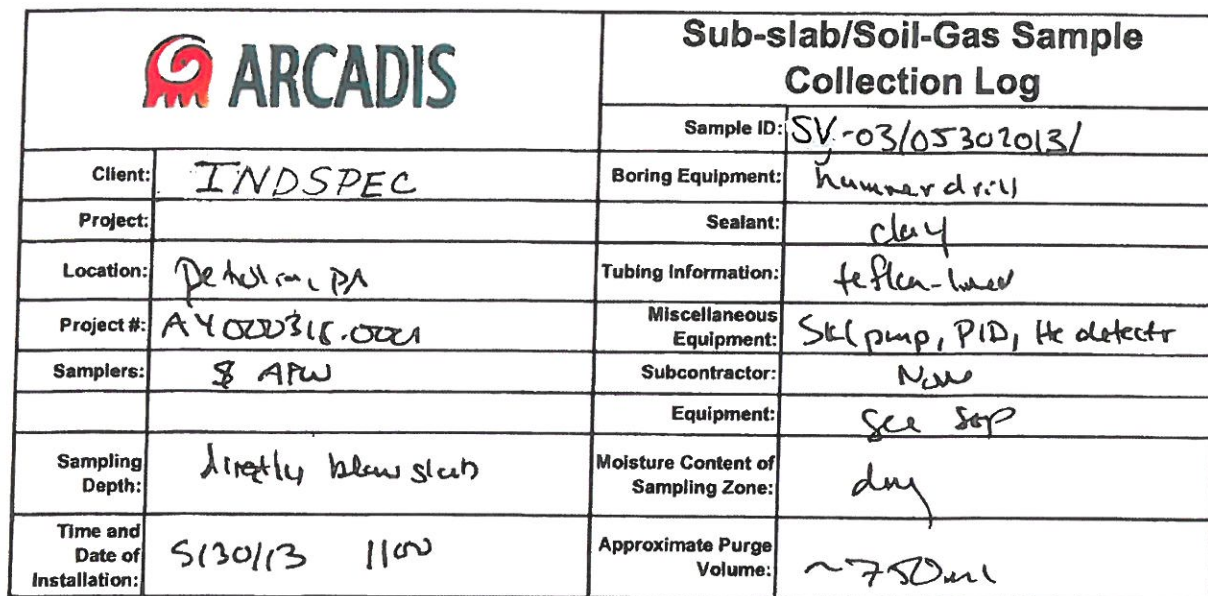 ARCADIS
Sub-slab/Soil-Gas Sample
Collection Log
Sample ID: SV-03/05302013/
Client: INDSPEC
Boring Equipment: hammer drill
Project:
Sealant: clay
Location: Petrolia, PA
Tubing Information: teflon-lined
Project #: AY000318.0001
Miscellaneous
Equipment: SKC pump, PID, He detectr
Samplers: APW
Subcontractor: None
Equipment: see SOP
Sampling
Depth: directly below slab
Moisture Content of
Sampling Zone: dry
Time and
Date of
Installation: 5/30/13 1100
Approximate Purge
Volume: ~750ml